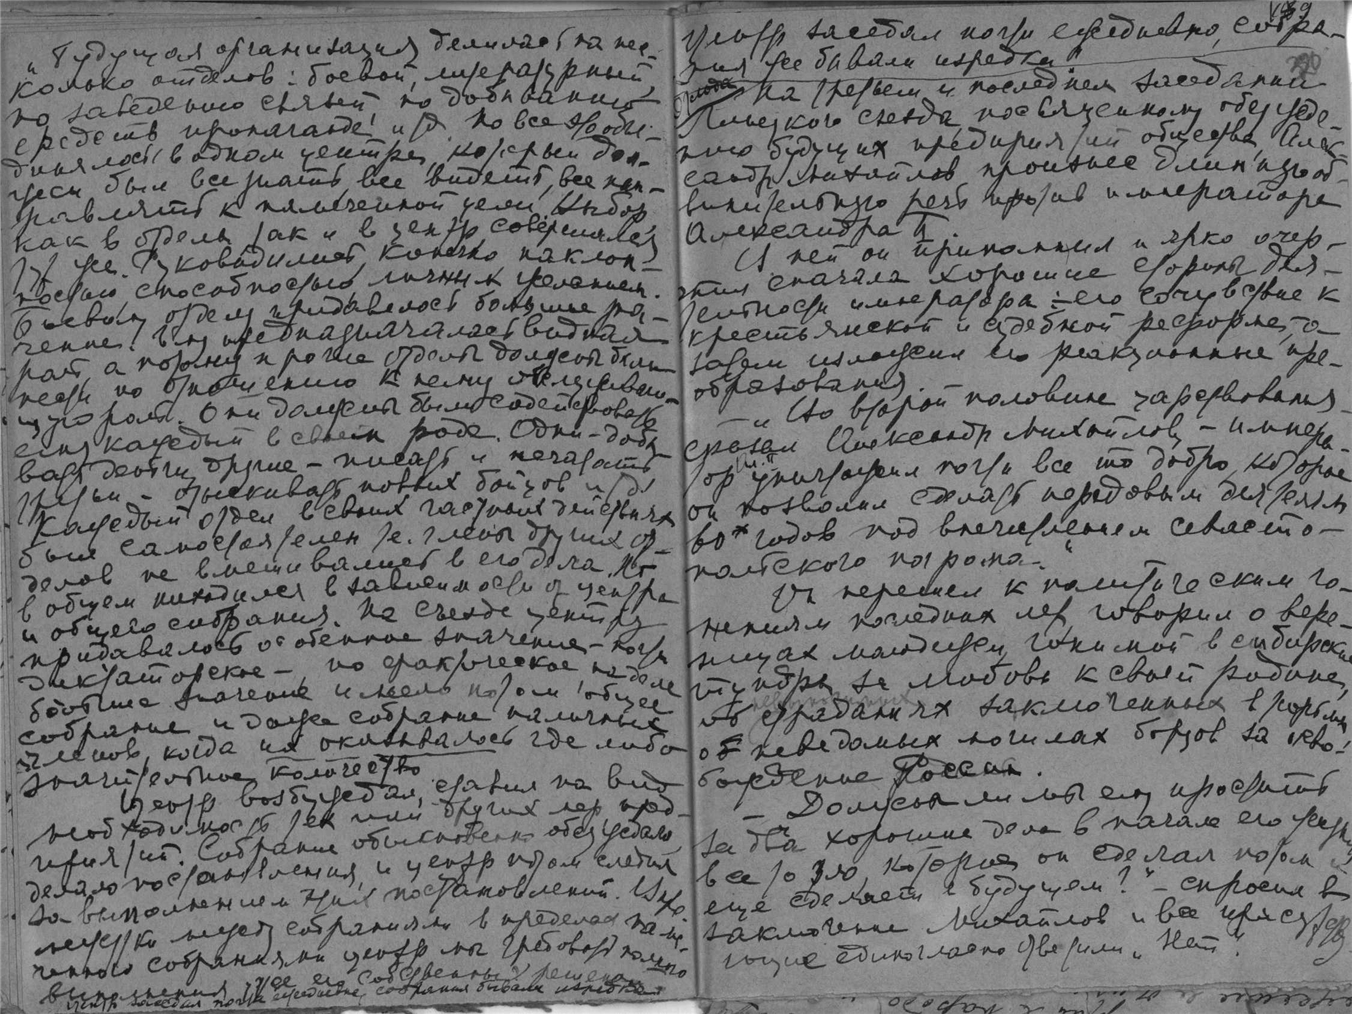 „Будущая организация делилась на нес-
колько отделов: боевой, литературный,
по заведению связей, по добыванию
средств, пропаганде и т.д. Но все это объе-
динялось в одном центре, который дол-
жен был все знать, все видеть, все нап-
равлять к намеченной цели. Выбор
как в отделы так и в центр совершался
тут же. Руководились конечно наклон-
ностью способностью личным желанием.
Боевому отделу придавалось большое зна-
чение. Ему предназначалась видная
роль а потому прочие отделы должны были
нести по отношению к нему служебн-
ую роль. Они должны были содействовать
ему каждый в своем роде. Одни - добы-
вать деньги, другие - писать и печатать
третьи - отыскивать новых бойцов и т.д.
Каждый отдел в своих частных действиях
был самостоятелен т.е. члены других от-
делов не вмешивались в его дела. Но
в общем находился в зависимости от центра
и общего собрания. На съезде центру
придавалось особенное значение - почти
диктаторское -, но фактическое на деле
большее значение имело потом общее
собрание и даже собрание наличных
членов, когда их оказывалось где либо
значительное количество.
Центр возбуждал, ставил на вид
необходимость тех или других мер, пред-
приятий. Собрание обыкновенно обсуждало,
делало постановления, и центр потом следил
за выполнением этих постановлений. В про-
межутки между собраниями в пределах наме-
ченного собраниями центр мог требовать полного
выполнения уже его собственных решений
Центр заседал почти ежедневно, собрания бывали изредка.
Центр заседал почти ежедневно, собра-
ния же бывали изредка"
На третьем и последнем заседании
Липецкого съезда посвященному обсужде-
нию будущих предприятий общества, Алек-
сандр Михайлов произнес длинную об-
винительную речь против императора
Александра II.
В ней он припомнил и ярко очер-
тил сначала хорошие стороны дея-
тельности императора: - его сочувствие к
крестьянской и судебной реформе, а
затем изложил его реакционные пре-
образования.
- „Во второй половине царствования -
сказал Александр Михайлов - импера-
тор уничтожил почти все то добро, которое
он позволил сделать передовым деятелям
60х годов под впечатлением севасто-
польского погрома."
Он перешел к политическим го-
нениям последних лет, говорил о вере-
ницах молодежи, гонимой в сибирские
тундры за любовь к своей родине,
об страданиях заключенных в тюрьмы
о неведомых могилах борцов за осво-
бождение России.
- Должны ли мы ему простить
за два хорошие дела в начале его жизни
все то зло, которое он сделал потом и
еще сделает в будущем?" - спросил в
заключение Михайлов и все присутству-
ющие единогласно ответили „Нет".